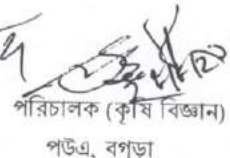 পরিচালক (কৃষি বিজ্ঞান)
পউএ, বগুড়া